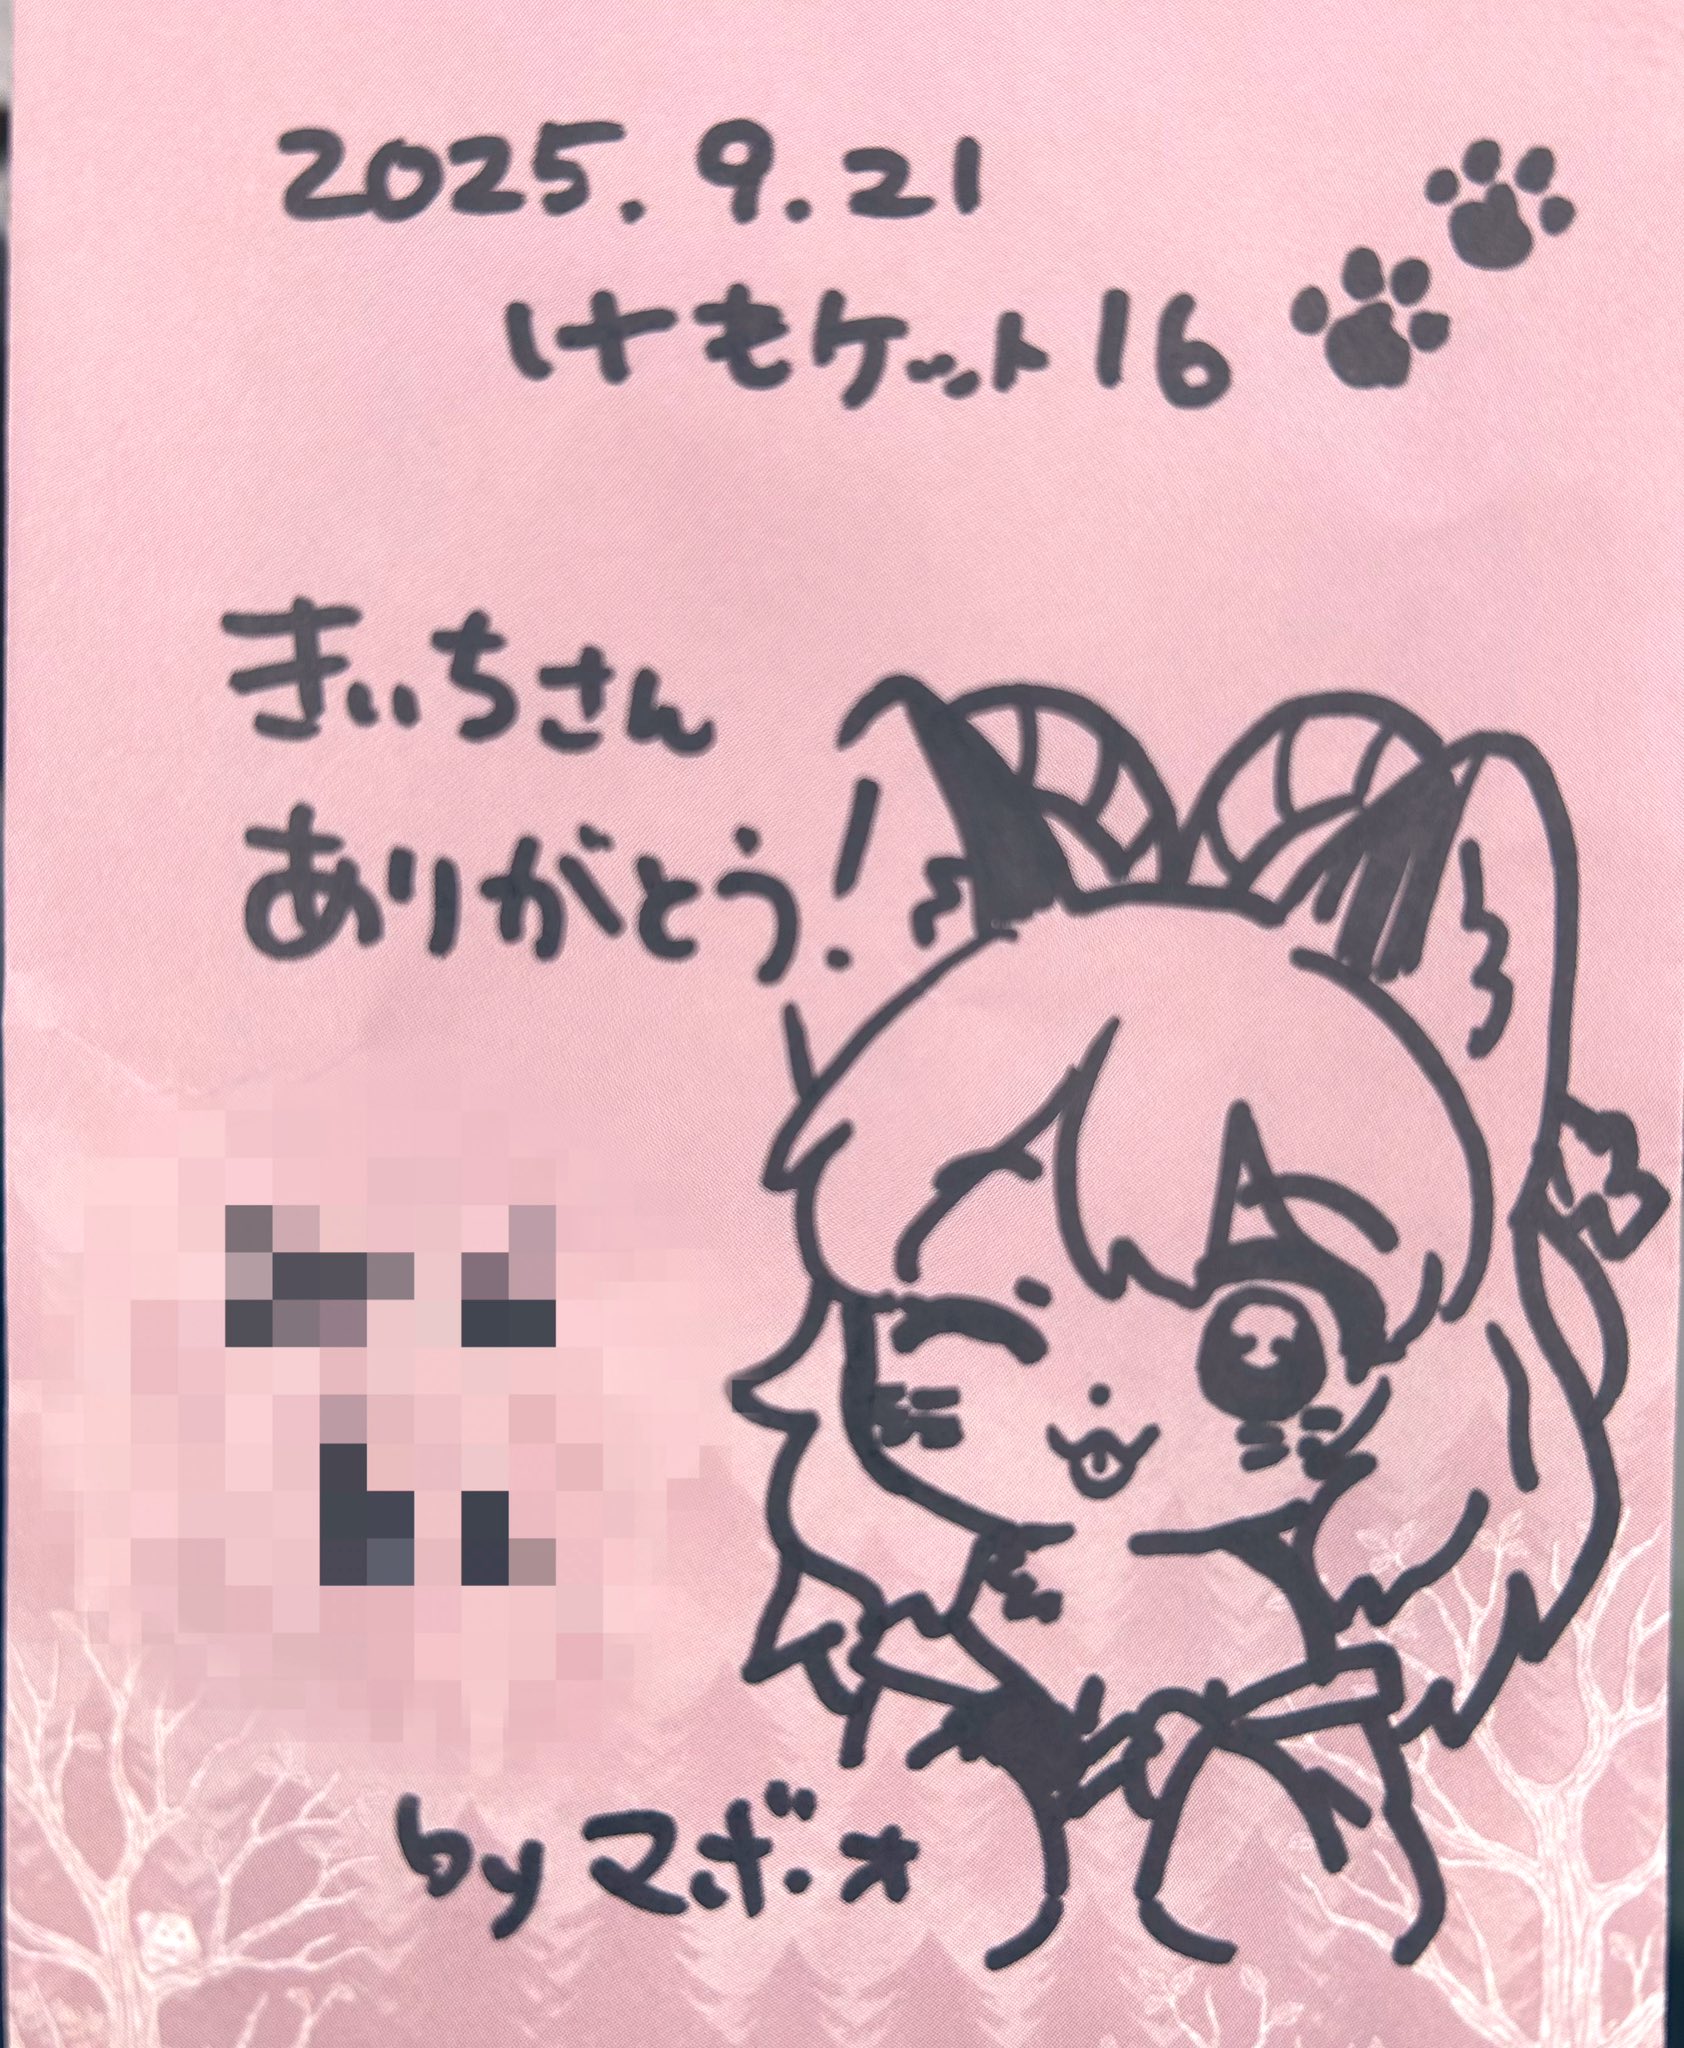 2025.9.21
けもケット16
きぃちさん
ありがとう!
by マボオ